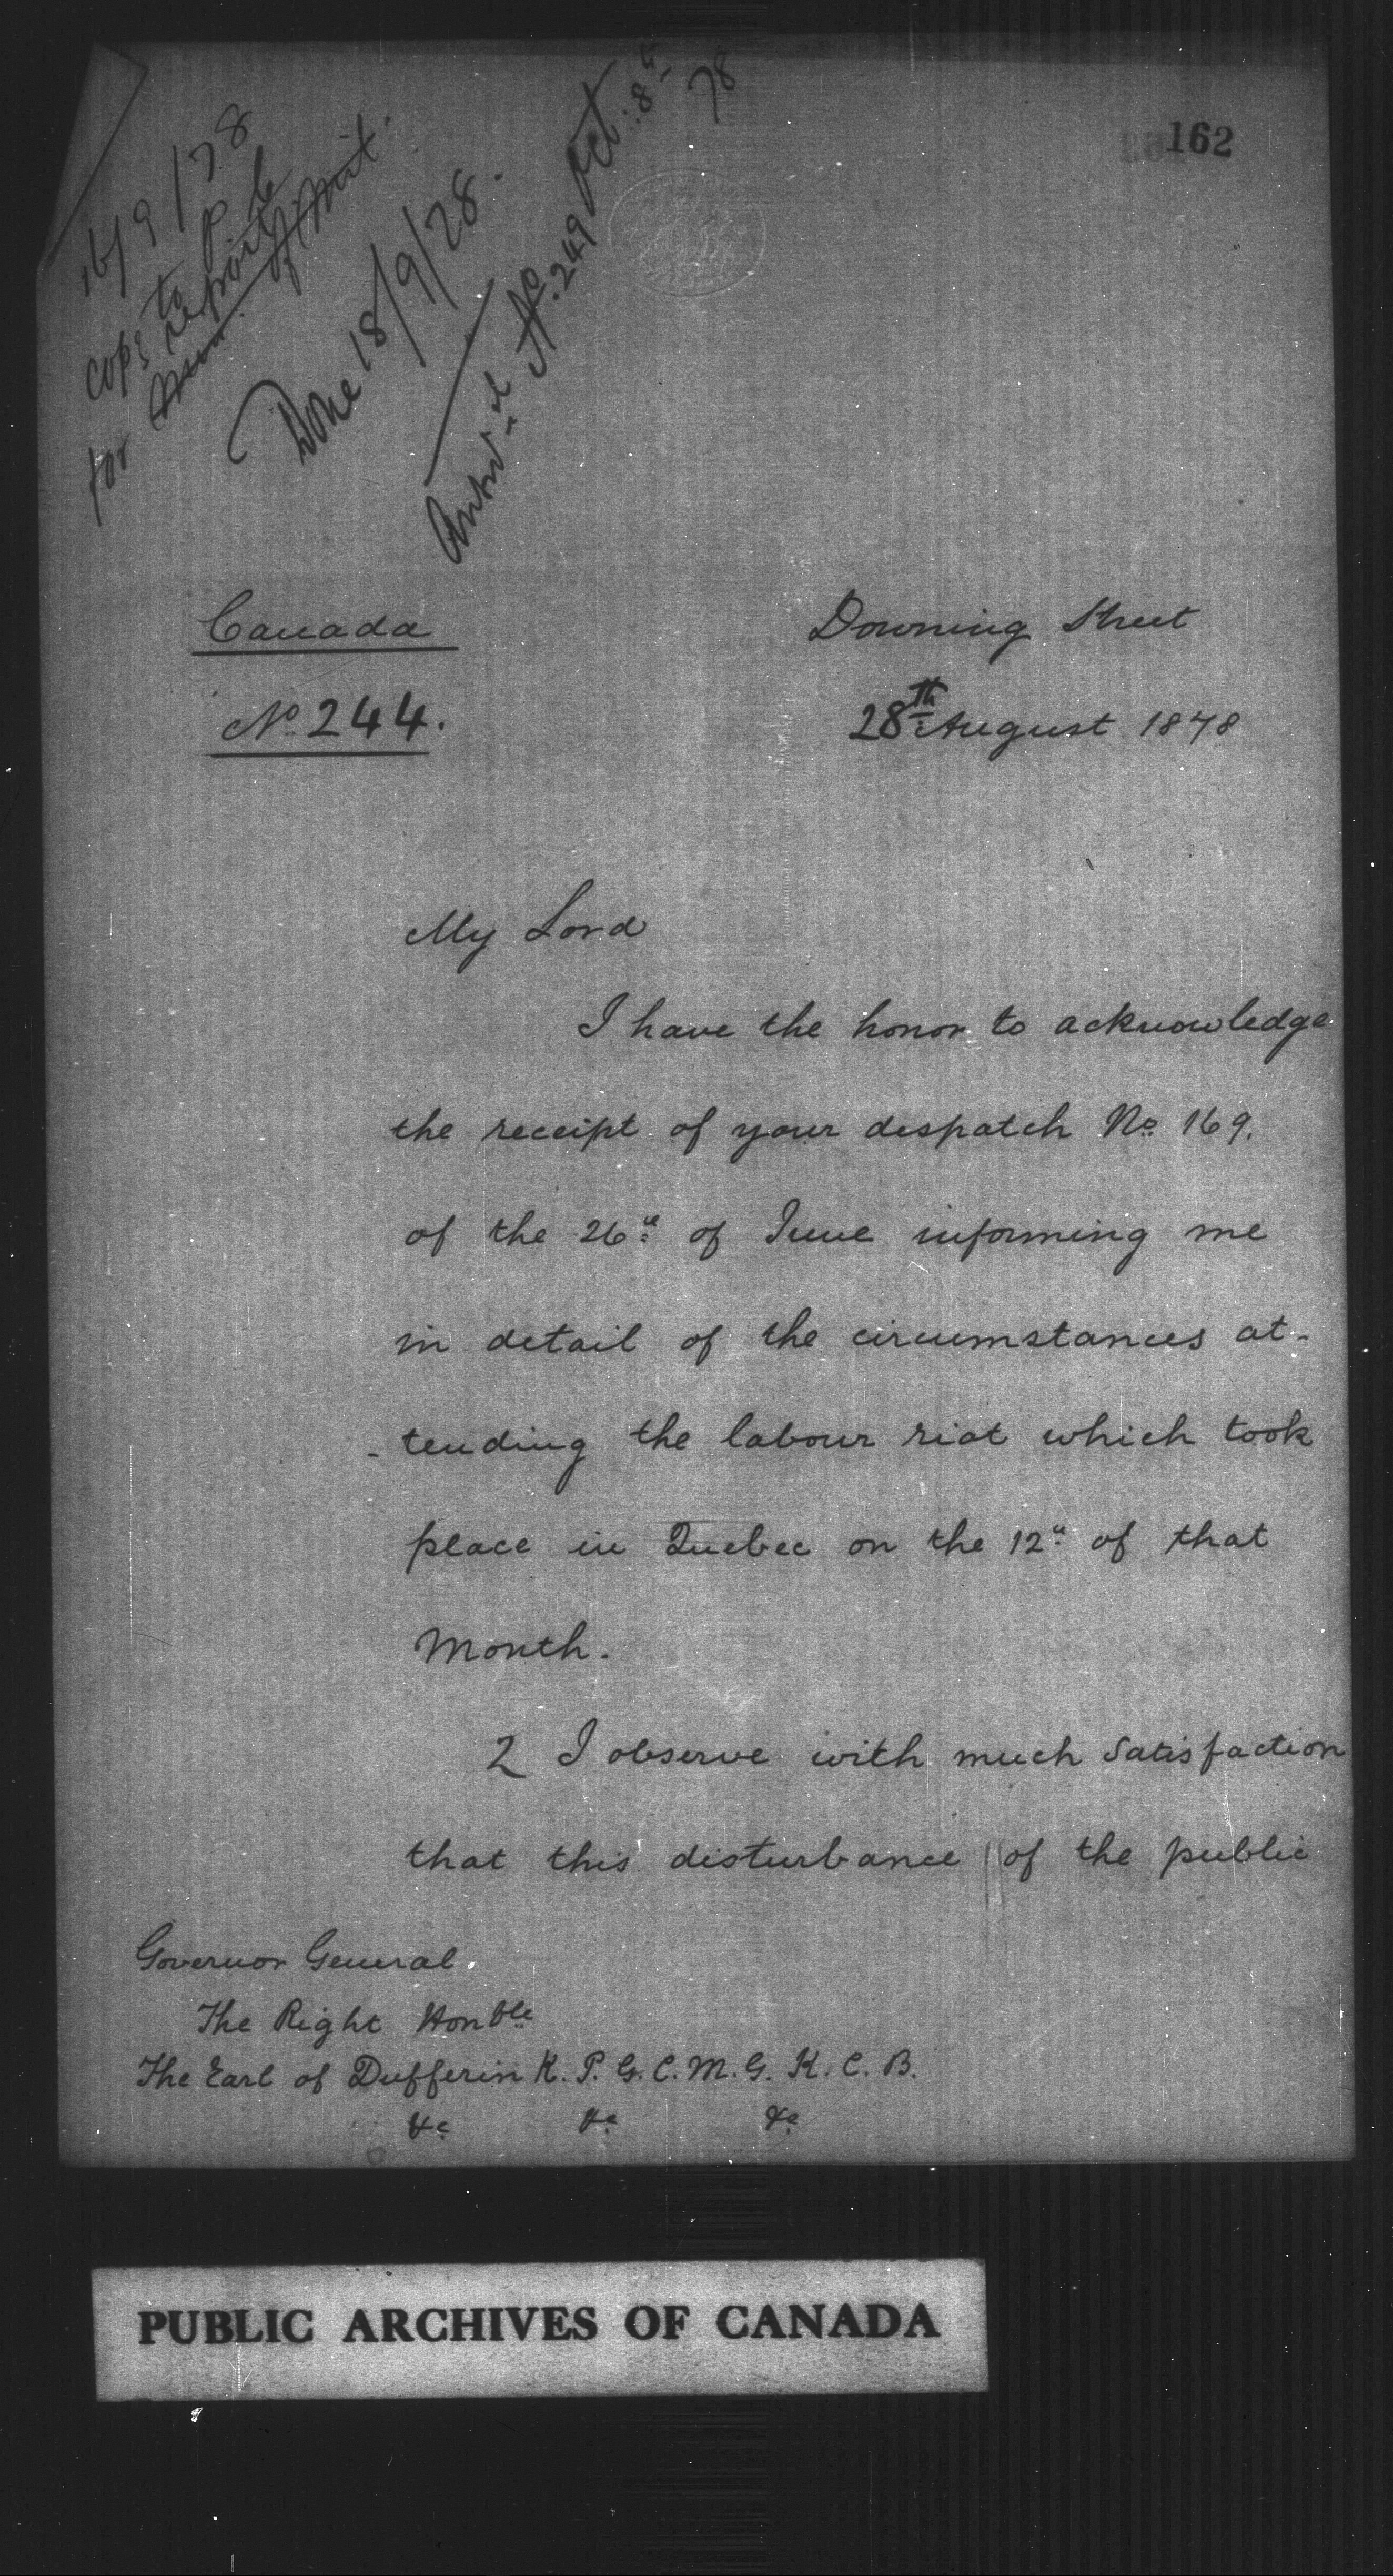 162
16/9/78
Copy to P.C.
for report
Done 18/9/78.
Answd No. 249 Oct: 8th
78
Canada
No. 244.
Downing Street
28th August 1878
My Lord
I have the honor to acknowledge
the receipt of your despatch No. 169.
of the 26th of June informing me
in detail of the circumstances at-
-tending the labour riot which took
place in Quebec on the 12th of that
Month.
2 I observe with much satisfaction
that this disturbance of the public
Governor General.
The Right Honble
The Earl of Dufferin K.P. G.C.M.G. K.C.B.
&c &c &c
PUBLIC ARCHIVES OF CANADA